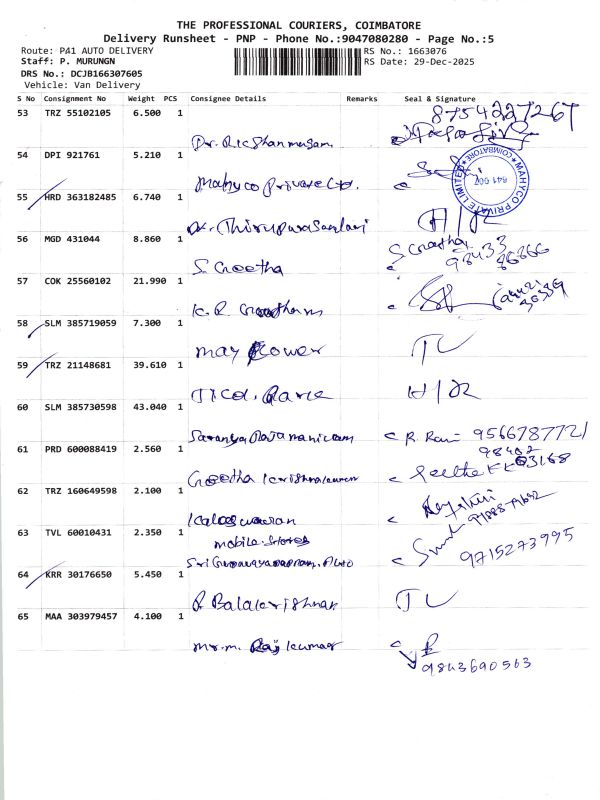 THE PROFESSIONAL COURIERS, COIMBATORE
Delivery Runsheet - PNP - Phone No.:9047080280 - Page No.:5
Route: P41 AUTO DELIVERY
RS No.: 1663076
Staff: P. MURUNGN
RS Date: 29-Dec-2025
DRS No.: DCJB166307605
Vehicle: Van Delivery
S No Consignment No Weight PCS Consignee Details Remarks Seal & Signature
53 TRZ 55102105 6.500 1
8754227267
Dr. Ric Shanmugam
54 DPI 921761 5.210 1
Mahyco Private Ltd.
MAHYCO PRIVATE LIMITED * COIMBATORE * 641 007
55 HRD 363182485 6.740 1
Dr. Thirupurasundari
H/R
56 MGD 431044 8.860 1
S. Geetha
S Geetha
98433
86866
57 COK 25560102 21.990 1
K. R.
58 SLM 385719059 7.300 1
may Flower
TL
59 TRZ 21148681 39.610 1
H/R
60 SLM 385730598 43.040 1
Saranya Rajamanickam
R. Ravi 9566787721
61 PRD 600088419 2.560 1
Geetha krishnakumar
98402
03168
62 TRZ 160649598 2.100 1
Kaleeswaran
mobile stores
63 TVL 60010431 2.350 1
Auto
9715273995
64 KRR 30176650 5.450 1
P Balakrishnan
TL
65 MAA 303979457 4.100 1
mr.m. Raj kumar
9843690563